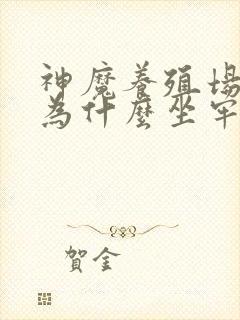 神魔養殖場
為什麼坐牢
賀金